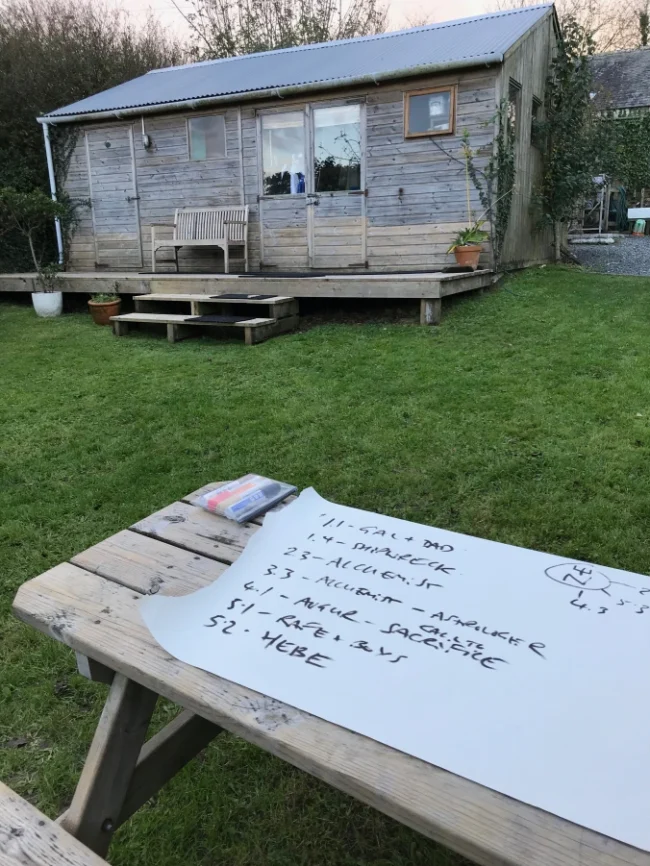 1.1 - GAL + DAD
1.4 - SHIPWRECK
2.3 - ALCHEMIST
3.3 - ALCHEMIST - ASTROLOGER
4.1 - AUGUR - CALL TO SACRIFICE
5.1 - RAFE + BOYS
5.2 - HEBE
N
2
5.3
4.3